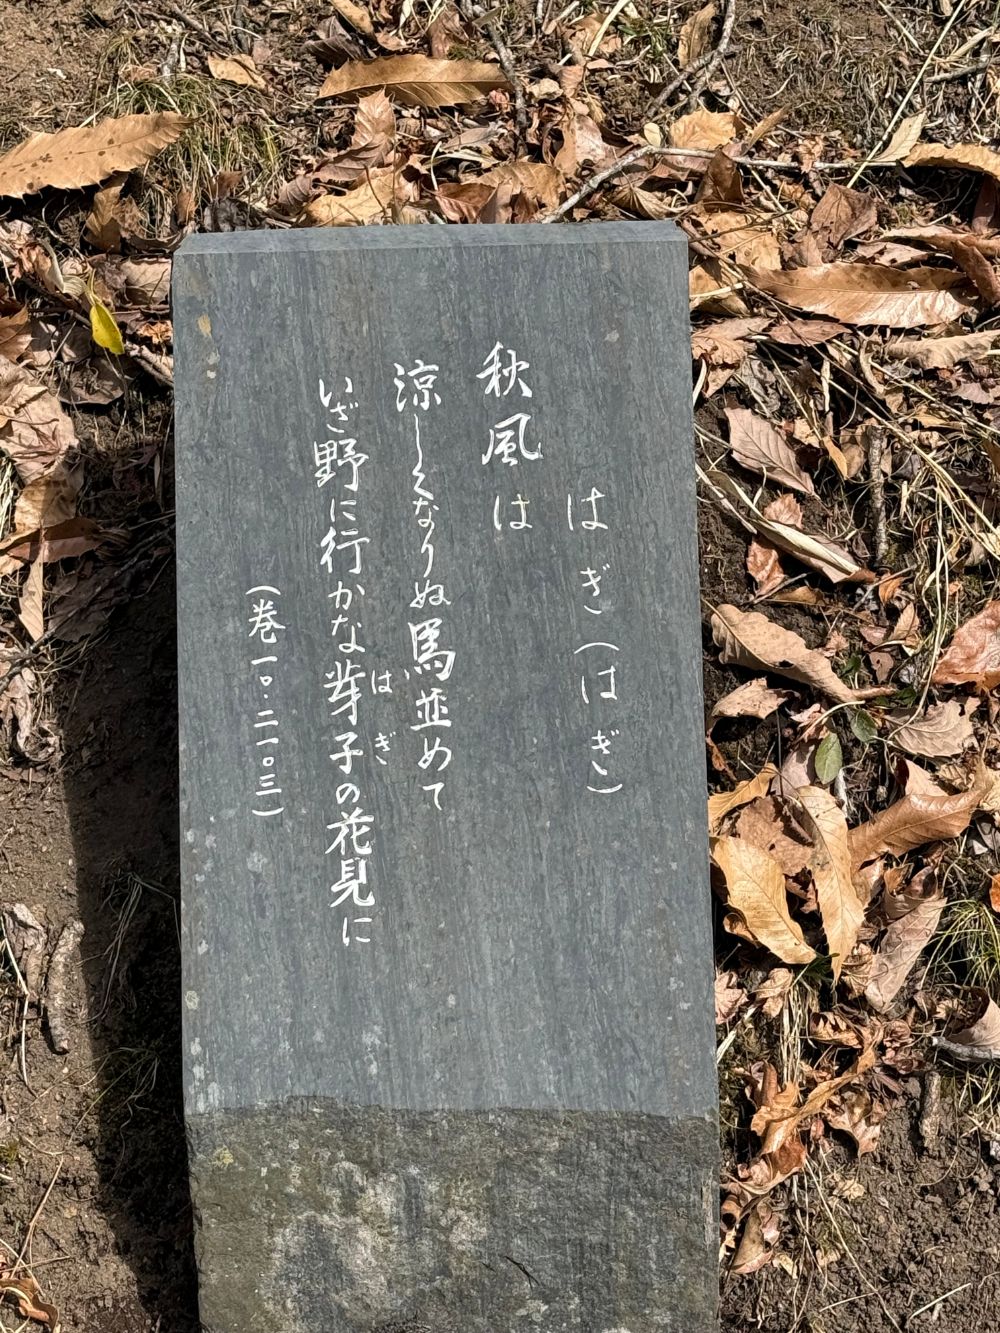 はぎ(はぎ)
秋風は
涼しくなりぬ馬並めて
いざ野に行かな芽子の花見に
はぎ
(巻一〇・二一〇三)